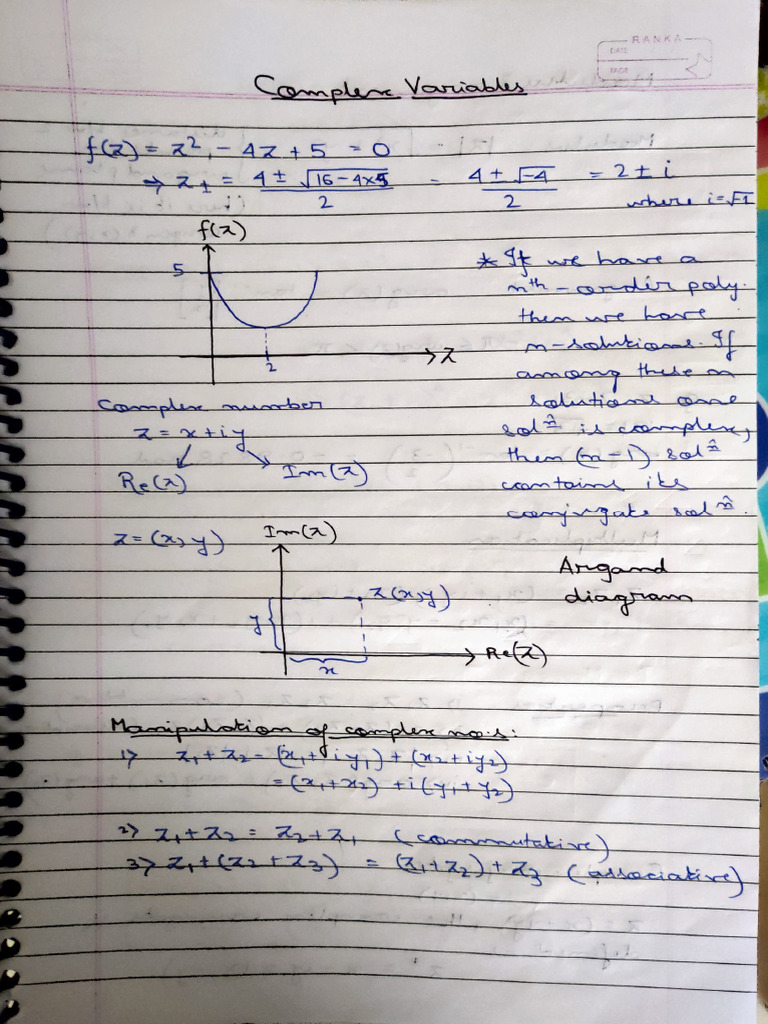 RANKA
DATE
PAGE
Complex Variables
f(z) = z², - 4z + 5 = 0
⇒ z± = 4 ± √16 - 4×5 / 2 = 4 ± √-4 / 2 = 2 ± i
where i = √-1
f(z)
5
z
2
* If we have a
nth-order poly.
then we have
n-solutions. If
among these n
solutions one
solⁿ is complex,
then (n-1) solⁿ
contains its
conjugate solⁿ.
Complex number
z = x + iy
Re(z) Im(z)
z = (x, y)
Im(z)
z(x,y)
y
x
Re(z)
Argand
diagram
Manipulation of complex no.s:
1> z₁ + z₂ = (x₁ + iy₁) + (x₂ + iy₂)
= (x₁ + x₂) + i(y₁ + y₂)
2> z₁ + z₂ = z₂ + z₁ (commutative)
3> z₁ + (z₂ + z₃) = (z₁ + z₂) + z₃ (associative)